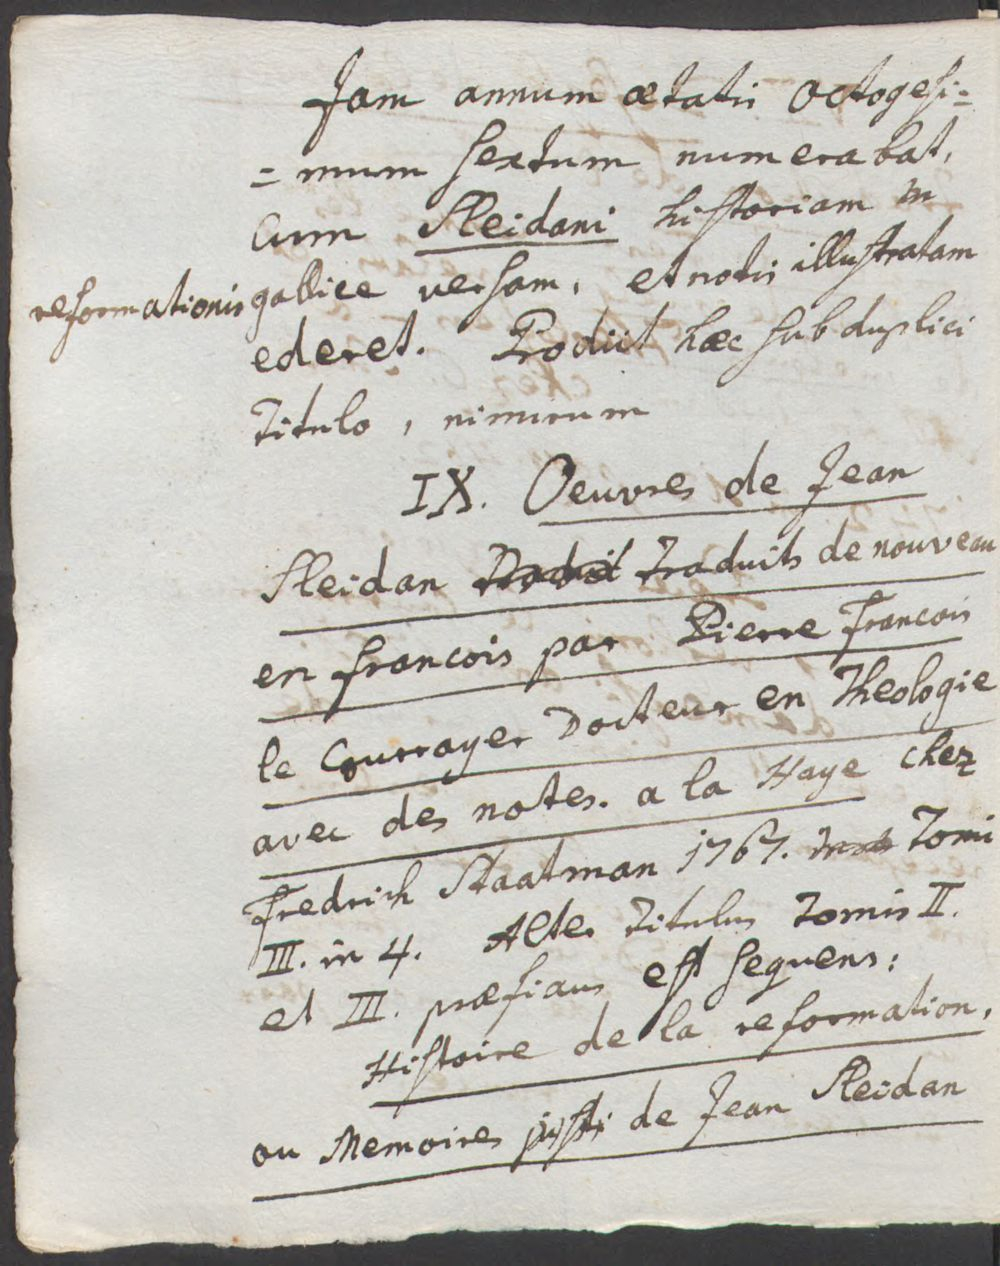 Jam annum ætatis octogesi=
= mum sextum numerabat,
Cum Sleidani historiam m
reformationis gallice versam, et notis illustratam
ederet. Prodiit hæc sub duplici
Titulo, nimirum
IX. Oeuvres de Jean
Sleidan Traduits de nouveau
en francois par Pierre Francois
le Courrayer Docteur en Theologie
avec des notes. a la Haye chez
Fredrich Staatman 1767. Tomi
III. in 4. Alter Titulus Tomis II.
et III. præfixus est sequens:
Histoire de la reformation,
ou Memoires de Jean Sleidan